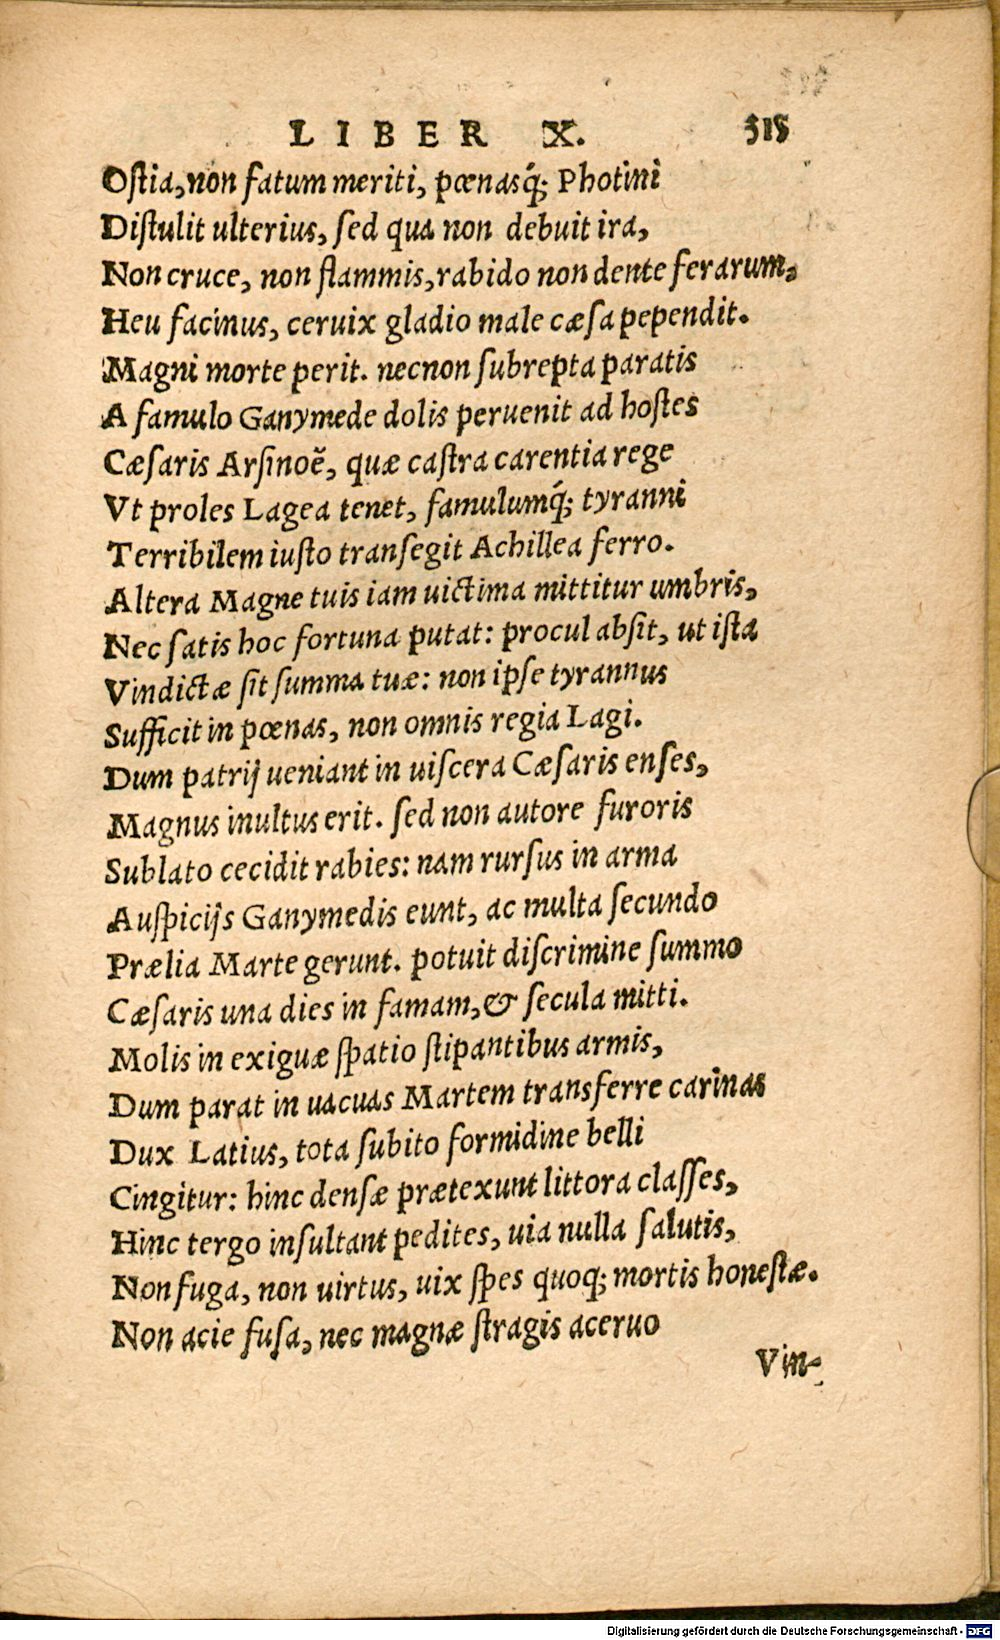 LIBER X. 315
Ostia, non fatum meriti, pœnasq́; Photini
Distulit ulterius, sed qua non debuit ira,
Non cruce, non flammis, rabido non dente ferarum,
Heu facinus, ceruix gladio male cæsa pependit.
Magni morte perit. necnon subrepta paratis
A famulo Ganymede dolis peruenit ad hostes
Cæsaris Arsinoë, quæ castra carentia rege
Vt proles Lagea tenet, famulumq́; tyranni
Terribilem iusto transegit Achillea ferro.
Altera Magne tuis iam uictima mittitur umbris,
Nec satis hoc fortuna putat: procul absit, ut ista
Vindictæ sit summa tuæ: non ipse tyrannus
Sufficit in pœnas, non omnis regia Lagi.
Dum patrij ueniant in uiscera Cæsaris enses,
Magnus inultus erit. sed non autore furoris
Sublato cecidit rabies: nam rursus in arma
Auspicijs Ganymedis eunt, ac multa secundo
Prælia Marte gerunt. potuit discrimine summo
Cæsaris una dies in famam, & secula mitti.
Molis in exiguæ spatio stipantibus armis,
Dum parat in uacuas Martem transferre carinas
Dux Latius, tota subito formidine belli
Cingitur: hinc densæ prætexunt littora classes,
Hinc tergo insultant pedites, uia nulla salutis,
Non fuga, non uirtus, uix spes quoq; mortis honestæ.
Non acie fusa, nec magnæ stragis aceruo
Vin-
Digitalisierung gefördert durch die Deutsche Forschungsgemeinschaft - DFG